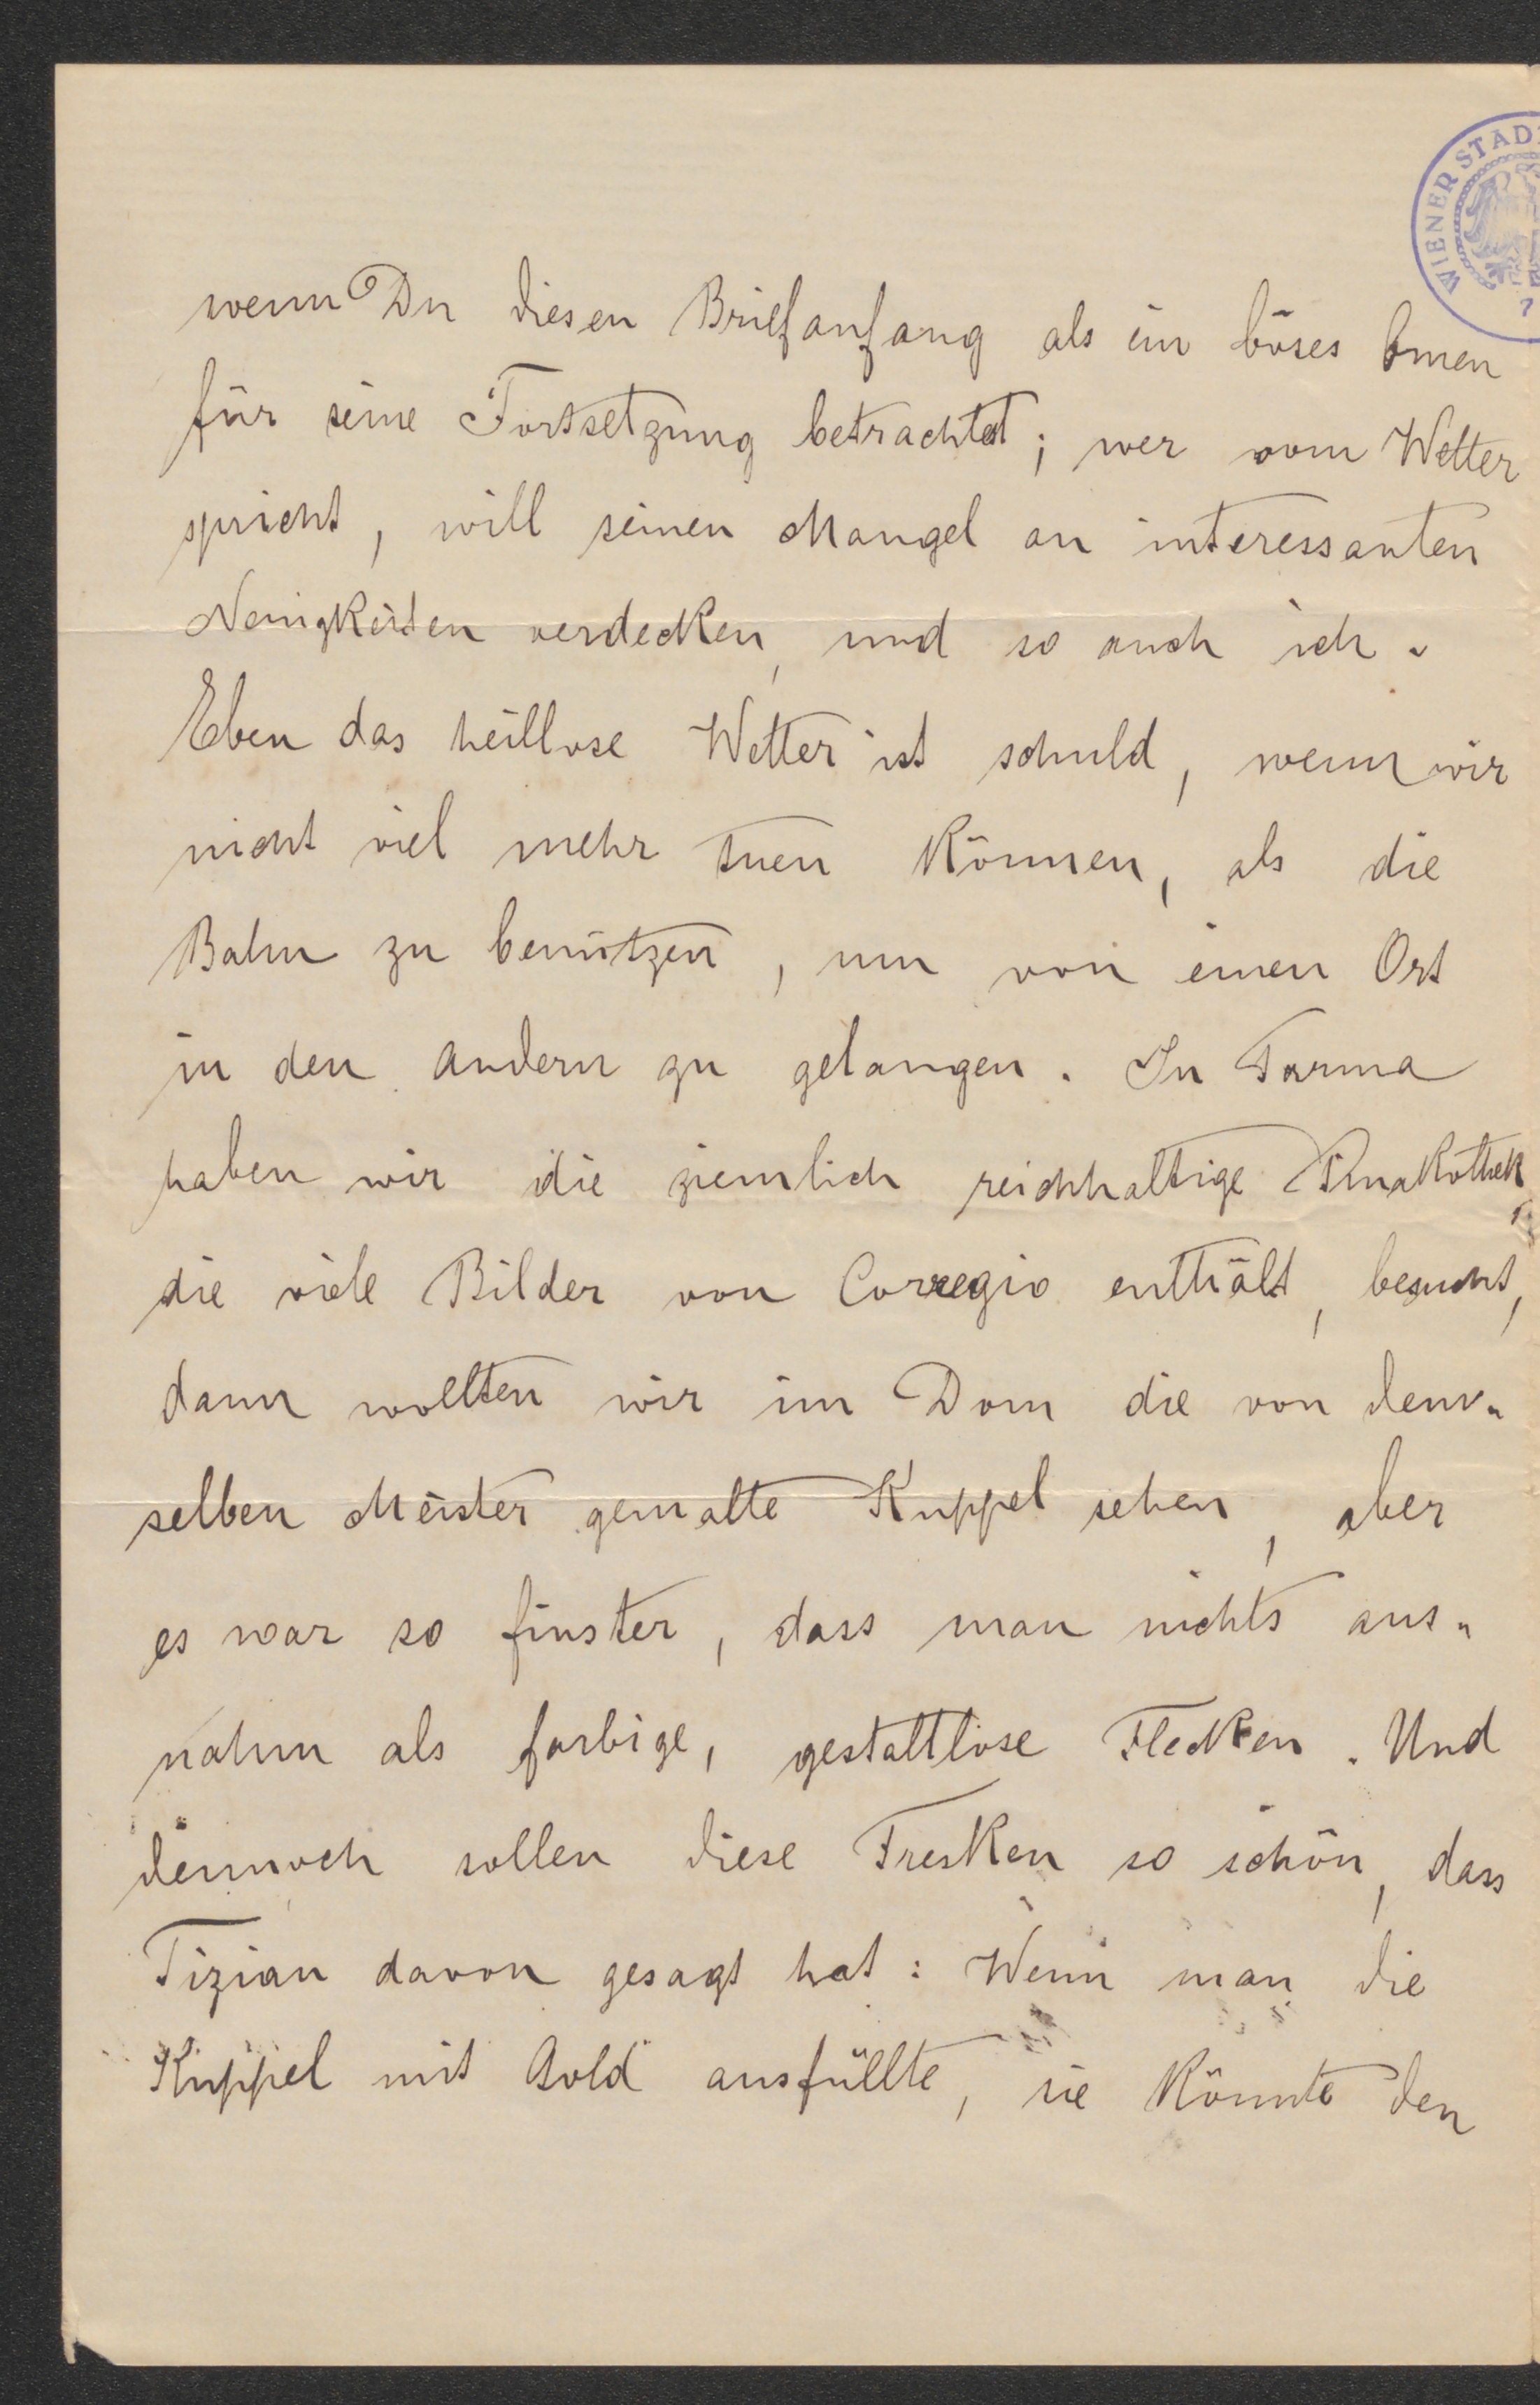 WIENER STAD
7
wenn Du diesen Briefanfang als ein böses Omen
für seine Fortsetzung betrachtet; wer vom Wetter
spricht, will seinen Mangel an interessanten
Neuigkeiten verdecken, und so auch ich.
Eben das heillose Wetter ist schuld, wenn wir
nicht viel mehr tuen können, als die
Bahn zu benützen, um von einen Ort
in den andern zu gelangen. In Parma
haben wir die ziemlich reichhaltige Pinakothek,
die viele Bilder von Corregio enthält, besucht,
dann wollten wir im Dom die von dem-
selben Meister gemalte Kuppel sehen, aber
es war so finster, dass man nichts aus-
nahm als farbige, gestaltlose Flecken. Und
dennoch sollen diese Fresken so schön, dass
Tizian davon gesagt hat: Wenn man die
Kuppel mit Gold ausfüllte, sie könnte den